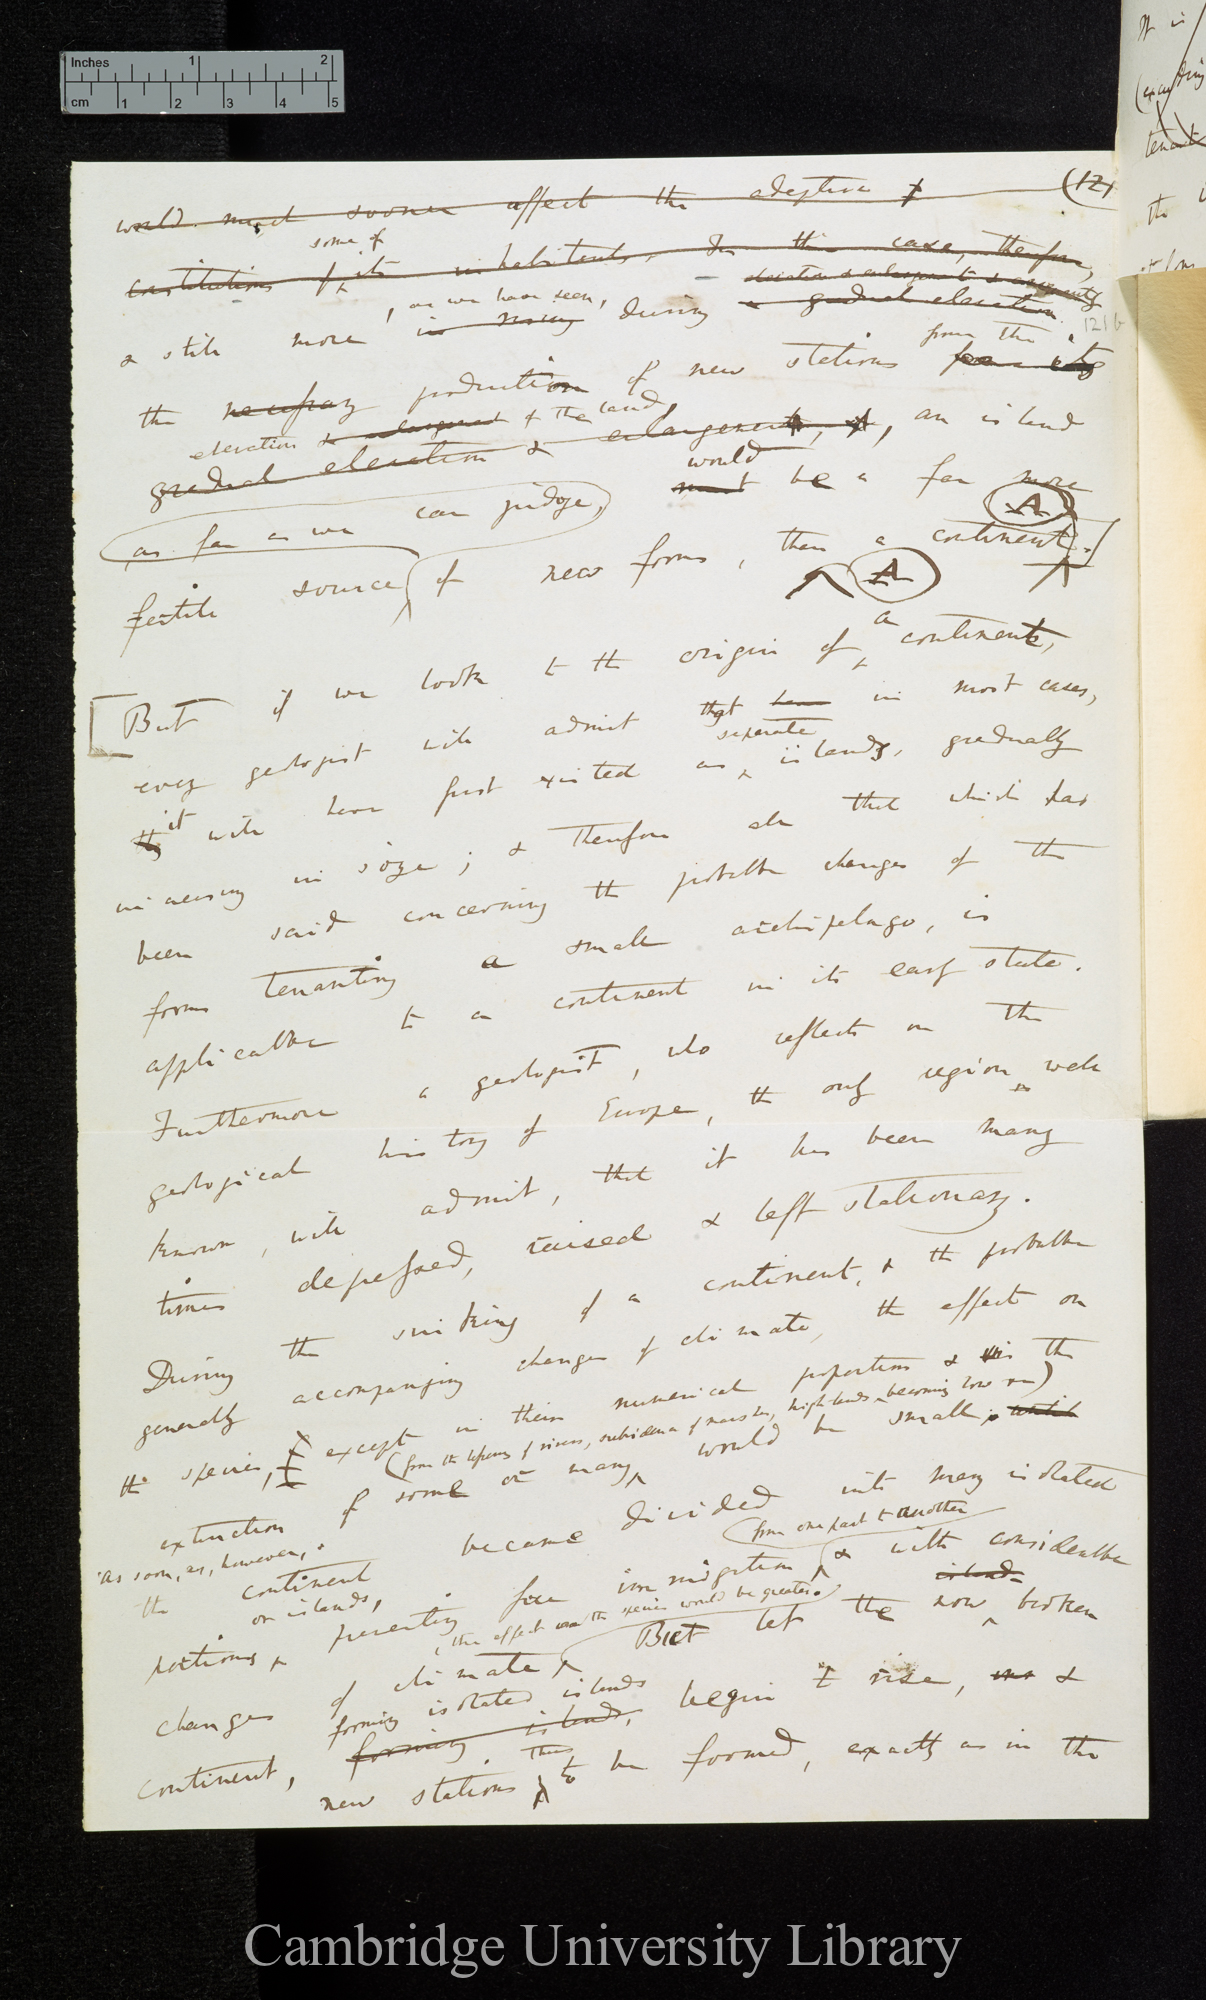 Inches 1 2
cm 1 2 3 4 5
would sooner affect the adaptive (121
some of
constitutions of its inhabitants. In this case, therefore,
elevation & enlargement &
, as we have seen,
& still more in rising during a gradual elevation
121 b
from the
the necessary production of new stations from its
elevation & enlargement of the land,
gradual elevation & enlargement, an island
would
as far as we can judge, must be a far more
A
fertile source of new forms, than a continent.
A
a
But if we look to the origin of continent,
every geologist will admit that have in most cases,
separate
it will have first existed as islands, gradually
increasing in size; & therefore all that which has
been said concerning the probable changes of the
forms tenanting a small archipelago, is
applicable to a continent in its early state.
Furthermore a geologist, who reflects on the
geological history of Europe, the only region well
known, will admit, that it has been many
times depressed, raised & left stationary.
During the sinking of a continent, & the probable
generally accompanying changes of climate, the effect on
the species, except in their numerical proportions & in the
(from the lessening of rivers, subsidence of marshes, highlands becoming low &c)
extinction of some or many would be small; which
As soon, as, however,
the continent became divided into many isolated
or islands,
from one part to another
portions, preventing free immigration & with considerable
the effect on the species would be greater.
islands
changes of climate, But let the now broken
forming isolated islands
continent, forming islands, begin to rise, & &
Thus
new stations to be formed, exactly as in the
It is
the
Cambridge University Library